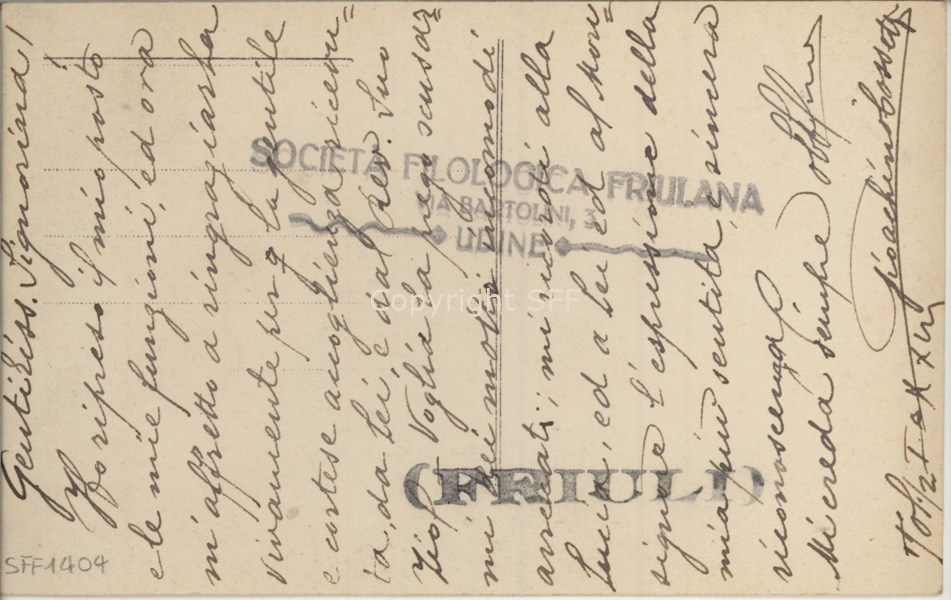 Gentiliss. Signorina!
Ho ripreso il mio posto
e le mie funzioni, ed ora
m'affretto a ringraziarla
vivamente per la gentile
e cortese accoglienza ricevu=
ta, da Lei e dal Rev. Suo
Zio. Voglia la prego scusar=
mi pei molti incomodi
arrecati; mi ricordi alla
Luci, ed a Lei ed al Mon=
signore l'espressione della
mia più sentita e sincera
riconoscenza.
Mi creda sempre obblmo
Gioachino
SOCIETÀ FILOLOGICA FRIULANA
VIA BARTOLINI, 3
UDINE
(FRIULI)
Copyright SFF
SFF1404